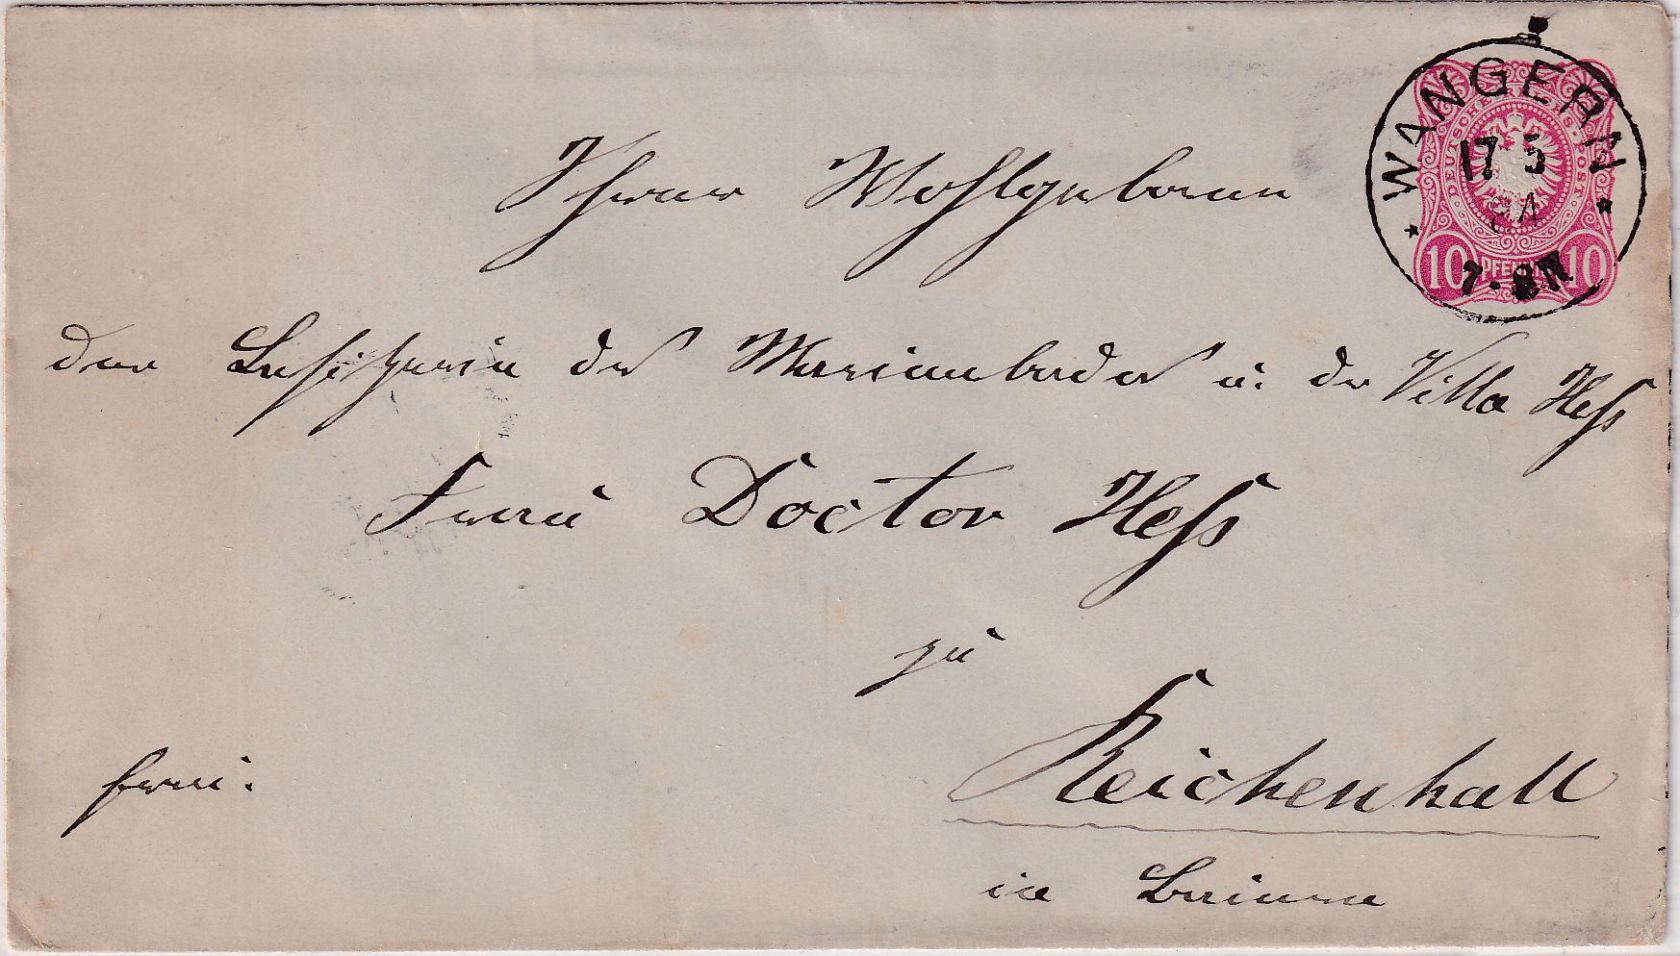 WANGERN
17 5
84
7-8N
DEUTSCHE REICHS-POST
10 PFENNIG 10
Ihrer Wohlgeboren
der Besitzerin des Marienbades u. der Villa Heß
Frau Doctor Heß
zu
Reichenhall
frei.
in Baiern